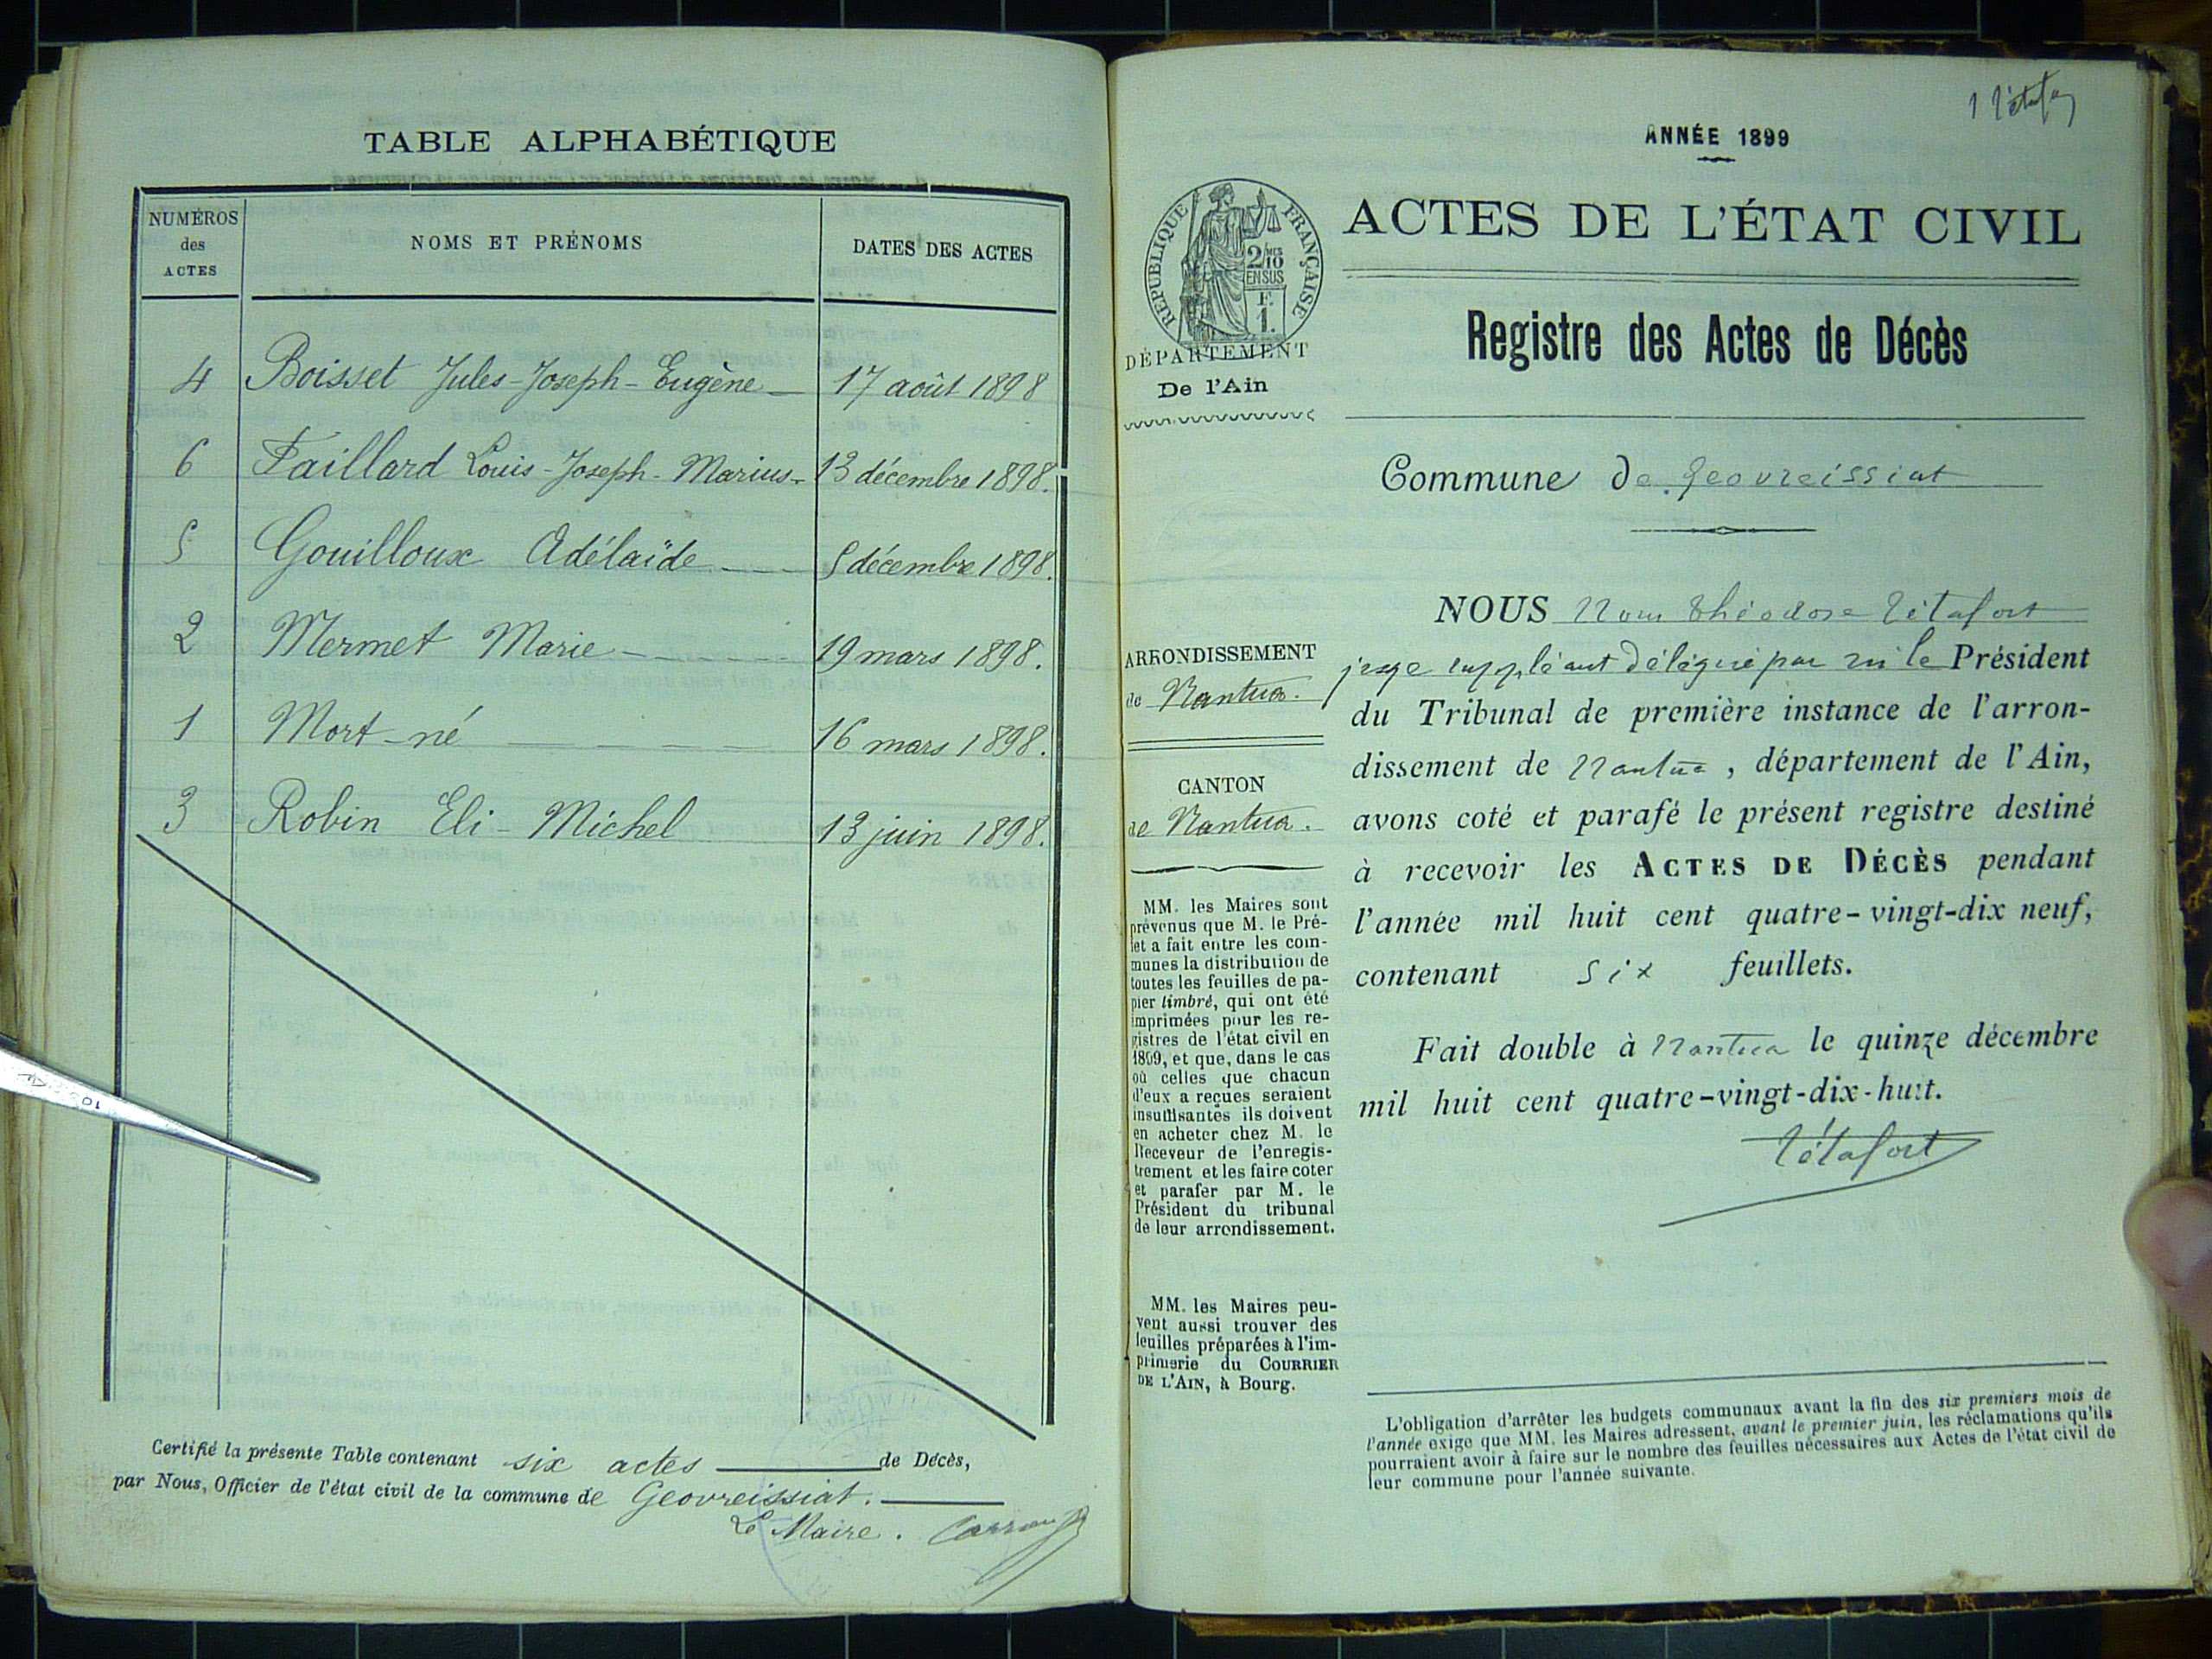 TABLE ALPHABÉTIQUE
NUMÉROS des ACTES
NOMS ET PRÉNOMS
DATES DES ACTES
4 Boisset Jules-Joseph-Eugène 17 août 1898
6 Faillard Louis-Joseph-Marius 13 décembre 1898.
5 Gouilloux Adélaïde 5 décembre 1898.
2 Mermet Marie 19 mars 1898.
1 Mort-né 16 mars 1898.
3 Robin Eli-Michel 13 juin 1898.
Certifié la présente Table contenant six actes de Décès,
par Nous, Officier de l'état civil de la commune de Geovreissiat.
Le Maire.
ANNÉE 1899
RÉPUBLIQUE FRANÇAISE
2/10
EN SUS
F.
1.
DÉPARTEMENT
De l'Ain
ARRONDISSEMENT
de Nantua.
CANTON
de Nantua.
MM. les Maires sont
prévenus que M. le Pré-
fet a fait entre les com-
munes la distribution de
toutes les feuilles de pa-
pier timbré, qui ont été
imprimées pour les re-
gistres de l'état civil en
1899, et que, dans le cas
où celles que chacun
d'eux a reçues seraient
insuffisantes ils doivent
en acheter chez M. le
Receveur de l'enregis-
trement et les faire coter
et parafer par M. le
Président du tribunal
de leur arrondissement.
MM. les Maires peu-
vent aussi trouver des
feuilles préparées à l'im-
primerie du COURRIER
DE L'AIN, à Bourg.
ACTES DE L'ÉTAT CIVIL
Registre des Actes de Décès
Commune de Geovreissiat
NOUS Nous Théodore Tétafort
juge suppléant délégué par le Président
du Tribunal de première instance de l'arron-
dissement de Nantua, département de l'Ain,
avons coté et parafé le présent registre destiné
à recevoir les ACTES DE DÉCÈS pendant
l'année mil huit cent quatre-vingt-dix neuf,
contenant six feuillets.
Fait double à Nantua le quinze décembre
mil huit cent quatre-vingt-dix-huit.
Tétafort
L'obligation d'arrêter les budgets communaux avant la fin des six premiers mois de
l'année exige que MM. les Maires adressent, avant le premier juin, les réclamations qu'ils
pourraient avoir à faire sur le nombre des feuilles nécessaires aux Actes de l'état civil de
leur commune pour l'année suivante.